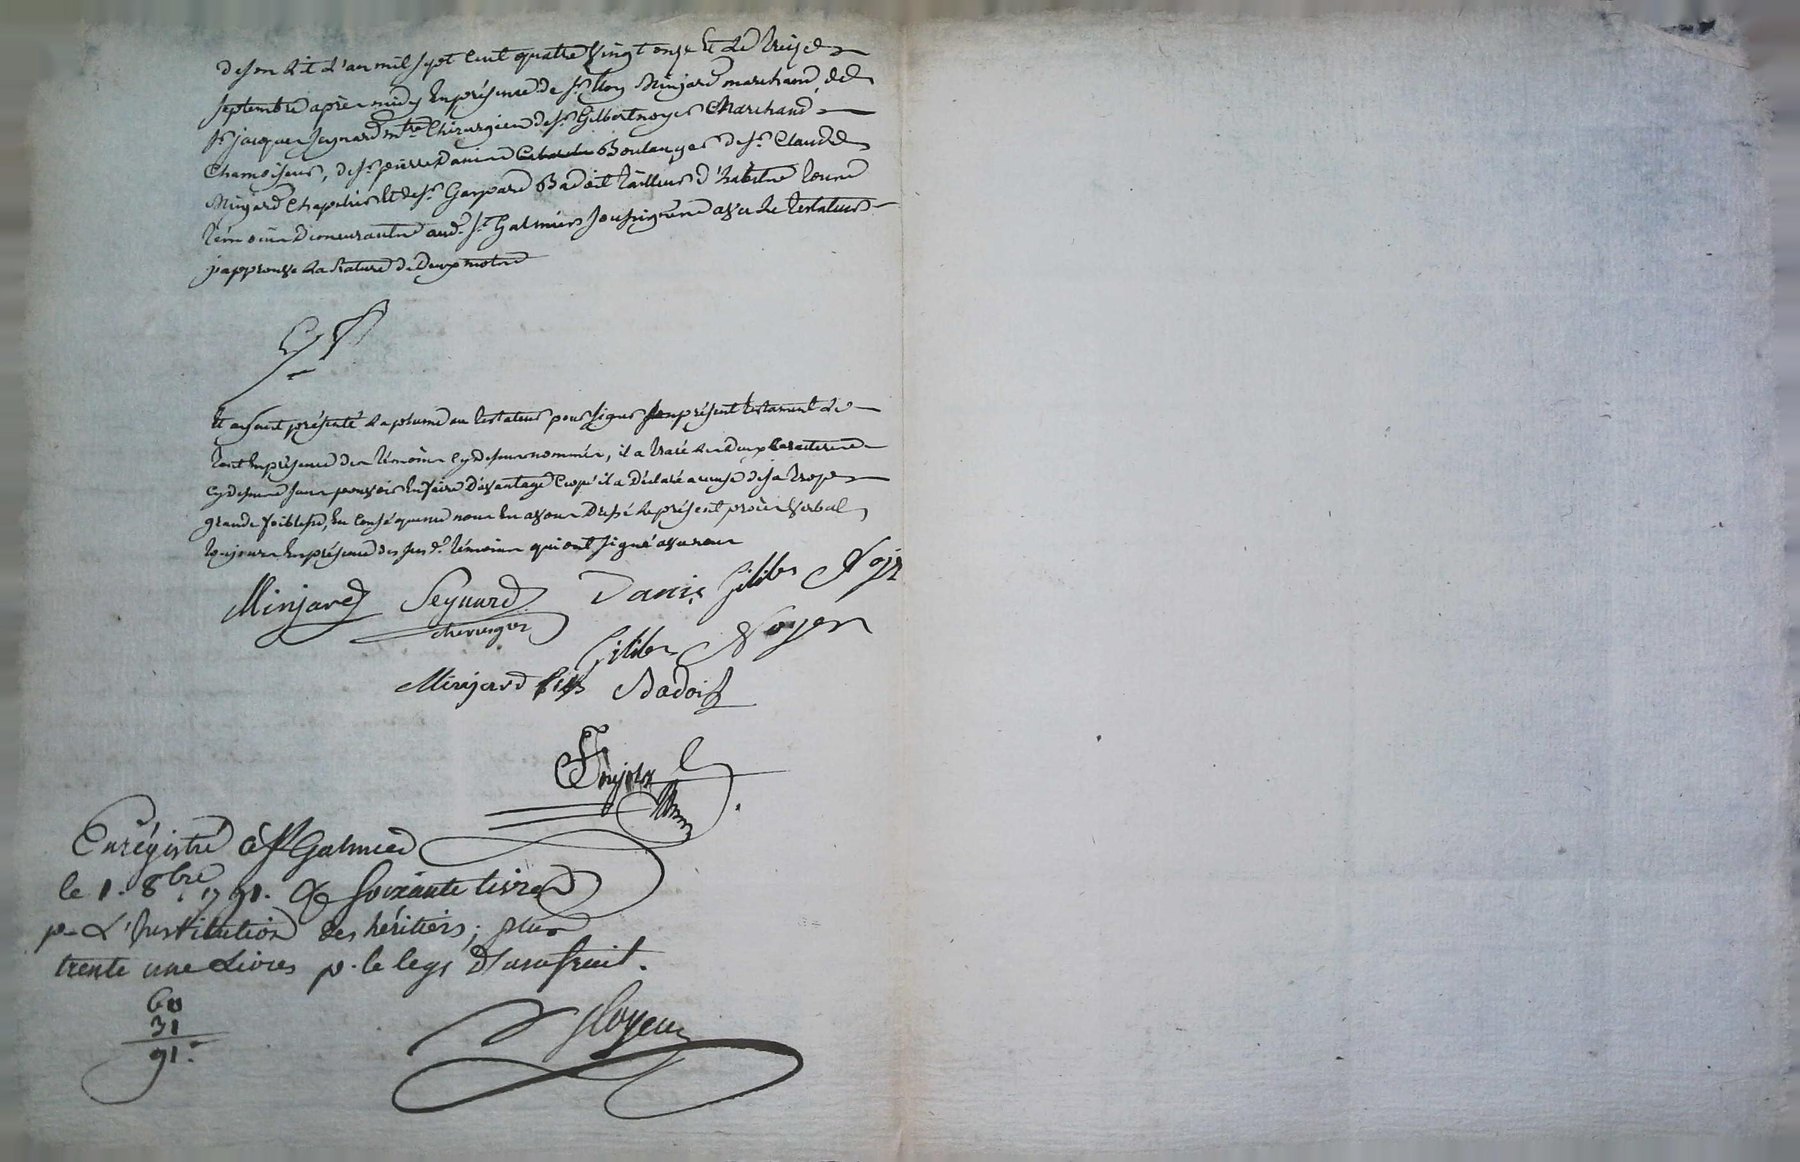 de son lit l'an mil sept cent quatre vingt onze et le treize
septembre après midy en présence de sr Minjard marchand, de
sr jacques Seynard mtre Chirurgien de sr Gilbert noyer Marchand
Chamoiseur, de sr pierre danis Boulanger de sr Claude
Minjard Chapelier et de sr Gaspard Badoit tailleur d'habits tous
témoins demeurants aud. st Galmier soussignés avec le testateur
j'approuve la rature de deux mots
Et ensuite présenté la plume au testateur pour signer son présent testament le
tout en présence des témoins cy dessus nommés, il a tracé les deux caracteres
cy dessus sans pouvoir en faire davantage ce qu'il a déclaré a cause de sa trop
grande foiblesse, en conséquence nous en avons dressé le présent procès verbal
toujours en présence des susd. témoins qui ont signé avec nous
Minjard Seynard Danis Gilber Noyer
chirurgien
Gilber Noyer
Minjard fils Badoit
Enrégistré à St Galmier
le 1. 8bre 1791. Soixante livres
pr L'Institution des héritiers; plus
trente une Livres pr le legs D'usufruit.
60
31
91.